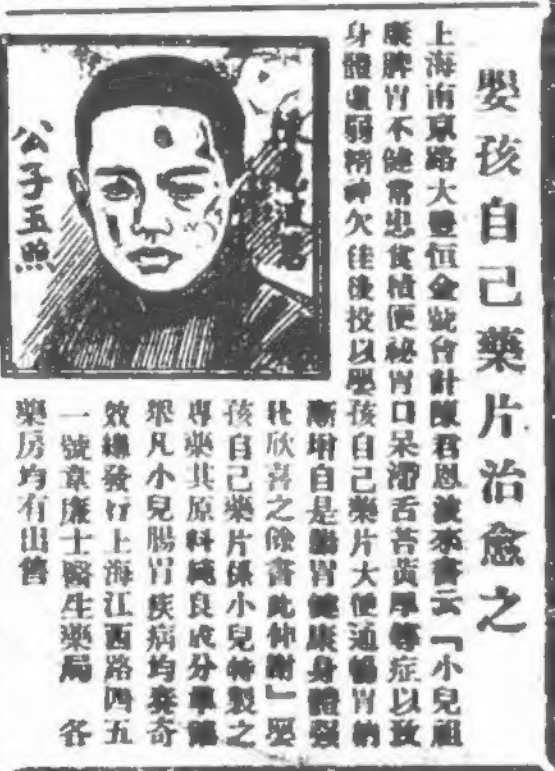 嬰孩自己藥片治愈之
上海南京路大豐恒金號會計陳君恩波來書云「小兒祖
康脾胃不健常患食積便秘胃口呆滯舌苔黃厚等症以致
身體虛弱精神欠佳後投以嬰孩自己藥片大便通暢胃納
漸增自是腸胃健康身體強
壯欣喜之餘書此伸謝」嬰
孩自己藥片係小兒特製之
專藥其原料純良成分準確
舉凡小兒腸胃疾病均奏奇
效總發行上海江西路四五
一號韋廉士醫生藥局 各
藥房均有出售
陳恩波君
公子玉照